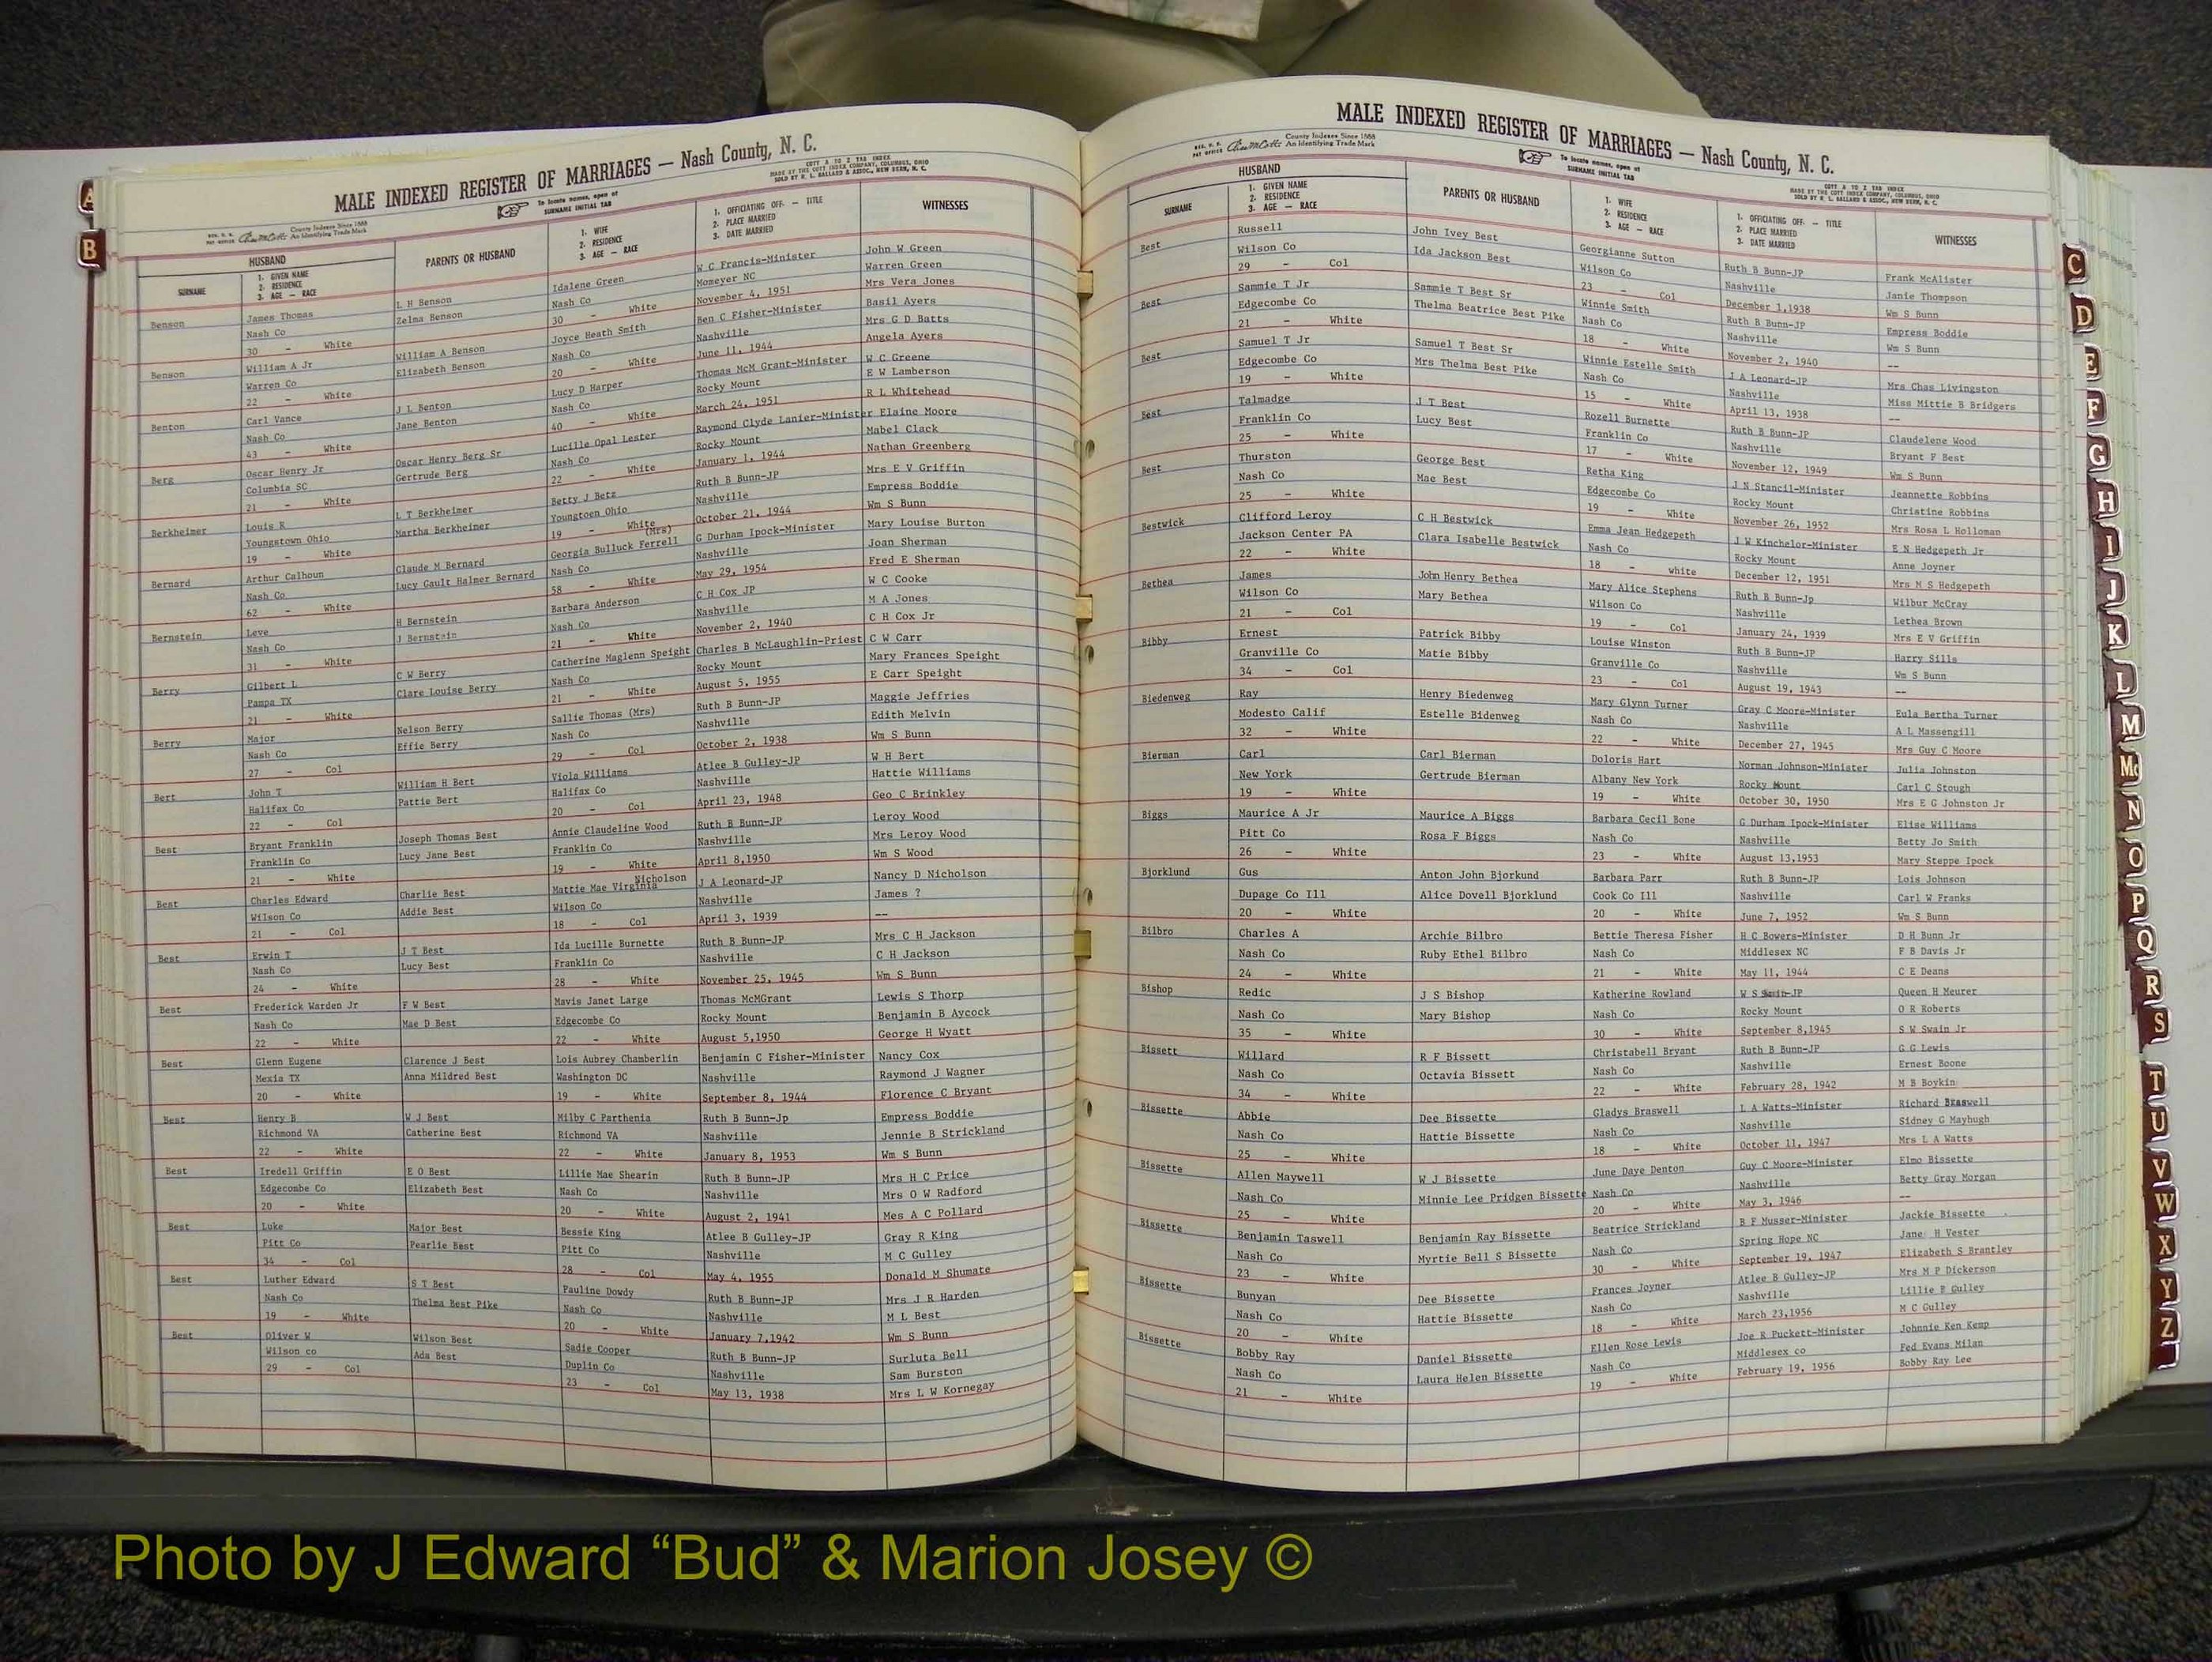 MALE INDEXED REGISTER OF MARRIAGES — Nash County, N. C.
REG. U. S. PAT OFFICE County Indexes Since 1888 An Identifying Trade Mark
To locate names, open at SURNAME INITIAL TAB
COTT A TO Z TAB INDEX
MADE BY THE COTT INDEX COMPANY, COLUMBUS, OHIO
SOLD BY R. L. BALLARD & ASSOC., NEW BERN, N. C.
HUSBAND
SURNAME 1. GIVEN NAME 2. RESIDENCE 3. AGE — RACE PARENTS OR HUSBAND 1. WIFE 2. RESIDENCE 3. AGE — RACE 1. OFFICIATING OFF. — TITLE 2. PLACE MARRIED 3. DATE MARRIED WITNESSES
Benson James Thomas L H Benson Idalene Green W C Francis-Minister John W Green
Nash Co Zelma Benson Nash Co Momeyer NC Warren Green
30 - White 30 - White November 4, 1951 Mrs Vera Jones
Benson William A Jr William A Benson Joyce Heath Smith Ben C Fisher-Minister Basil Ayers
Warren Co Elizabeth Benson Nash Co Nashville Mrs G D Batts
22 - White 20 - White June 11, 1944 Angela Ayers
Benton Carl Vance J L Benton Lucy D Harper Thomas McM Grant-Minister W C Greene
Nash Co Jane Benton Nash Co Rocky Mount E W Lamberson
43 - White 40 - White March 24, 1951 R L Whitehead
Berg Oscar Henry Jr Oscar Henry Berg Sr Lucille Opal Lester Raymond Clyde Lanier-Minister Elaine Moore
Columbia SC Gertrude Berg Nash Co Rocky Mount Mabel Clack
21 - White 22 - White January 1, 1944 Nathan Greenberg
Berkheimer Louis R L T Berkheimer Betty J Betz Ruth B Bunn-JP Mrs E V Griffin
Youngstown Ohio Martha Berkheimer Youngtoen Ohio Nashville Empress Boddie
19 - White 19 - White October 21, 1944 Wm S Bunn
Bernard Arthur Calhoun Claude M Bernard Georgia Bulluck Ferrell (Mrs) G Durham Ipock-Minister Mary Louise Burton
Nash Co Lucy Gault Halner Bernard Nash Co Nashville Joan Sherman
62 - White 58 - White May 29, 1954 Fred E Sherman
Bernstein Leve H Bernstein Barbara Anderson C H Cox JP W C Cooke
Nash Co J Bernstein Nash Co Nashville M A Jones
31 - White 21 - White November 2, 1940 C H Cox Jr
Berry Gilbert L C W Berry Catherine Maglenn Speight Charles B McLaughlin-Priest C W Carr
Pampa TX Clare Louise Berry Nash Co Rocky Mount Mary Frances Speight
21 - White 21 - White August 5, 1955 E Carr Speight
Berry Major Nelson Berry Sallie Thomas (Mrs) Ruth B Bunn-JP Maggie Jeffries
Nash Co Effie Berry Nash Co Nashville Edith Melvin
27 - Col 29 - Col October 2, 1938 Wm S Bunn
Bert John T William H Bert Viola Williams Atlee B Gulley-JP W H Bert
Halifax Co Pattie Bert Halifax Co Nashville Hattie Williams
22 - Col 20 - Col April 23, 1948 Geo C Brinkley
Best Bryant Franklin Joseph Thomas Best Annie Claudeline Wood Ruth B Bunn-JP Leroy Wood
Franklin Co Lucy Jane Best Franklin Co Nashville Mrs Leroy Wood
21 - White 19 - White April 8,1950 Wm S Wood
Best Charles Edward Charlie Best Mattie Mae Virginia Nicholson J A Leonard-JP Nancy D Nicholson
Wilson Co Addie Best Wilson Co Nashville James ?
21 - Col 18 - Col April 3, 1939 --
Best Erwin T J T Best Ida Lucille Burnette Ruth B Bunn-JP Mrs C H Jackson
Nash Co Lucy Best Franklin Co Nashville C H Jackson
24 - White 28 - White November 25, 1945 Wm S Bunn
Best Frederick Warden Jr F W Best Mavis Janet Large Thomas McMGrant Lewis S Thorp
Nash Co Mae D Best Edgecombe Co Rocky Mount Benjamin B Aycock
22 - White 22 - White August 5,1950 George H Wyatt
Best Glenn Eugene Clarence J Best Lois Aubrey Chamberlin Benjamin C Fisher-Minister Nancy Cox
Mexia TX Anna Mildred Best Washington DC Nashville Raymond J Wagner
20 - White 19 - White September 8, 1944 Florence C Bryant
Best Henry B W J Best Milby C Parthenia Ruth B Bunn-Jp Empress Boddie
Richmond VA Catherine Best Richmond VA Nashville Jennie B Strickland
22 - White 22 - White January 8, 1953 Wm S Bunn
Best Iredell Griffin E O Best Lillie Mae Shearin Ruth B Bunn-JP Mrs H C Price
Edgecombe Co Elizabeth Best Nash Co Nashville Mrs O W Radford
20 - White 20 - White August 2, 1941 Mes A C Pollard
Best Luke Major Best Bessie King Atlee B Gulley-JP Gray R King
Pitt Co Pearlie Best Pitt Co Nashville M C Gulley
34 - Col 28 - Col May 4, 1955 Donald M Shumate
Best Luther Edward S T Best Pauline Dowdy Ruth B Bunn-JP Mrs J R Harden
Nash Co Thelma Best Pike Nash Co Nashville M L Best
19 - White 20 - White January 7,1942 Wm S Bunn
Best Oliver W Wilson Best Sadie Cooper Ruth B Bunn-JP Surluta Bell
Wilson co Ada Best Duplin Co Nashville Sam Burston
29 - Col 23 - Col May 13, 1938 Mrs L W Kornegay
MALE INDEXED REGISTER OF MARRIAGES — Nash County, N. C.
REG. U. S. PAT OFFICE County Indexes Since 1888 An Identifying Trade Mark
To locate names, open at SURNAME INITIAL TAB
COTT A TO Z TAB INDEX
MADE BY THE COTT INDEX COMPANY, COLUMBUS, OHIO
SOLD BY R. L. BALLARD & ASSOC., NEW BERN, N. C.
HUSBAND
SURNAME 1. GIVEN NAME 2. RESIDENCE 3. AGE — RACE PARENTS OR HUSBAND 1. WIFE 2. RESIDENCE 3. AGE — RACE 1. OFFICIATING OFF. — TITLE 2. PLACE MARRIED 3. DATE MARRIED WITNESSES
Best Russell John Ivey Best Georgianne Sutton Ruth B Bunn-JP Frank McAlister
Wilson Co Ida Jackson Best Wilson Co Nashville Janie Thompson
29 - Col 23 - Col December 1,1938 Wm S Bunn
Best Sammie T Jr Sammie T Best Sr Winnie Smith Ruth B Bunn-JP Empress Boddie
Edgecombe Co Thelma Beatrice Best Pike Nash Co Nashville Wm S Bunn
21 - White 18 - White November 2, 1940 --
Best Samuel T Jr Samuel T Best Sr Winnie Estelle Smith J A Leonard-JP Mrs Chas Livingston
Edgecombe Co Mrs Thelma Best Pike Nash Co Nashville Miss Mittie B Bridgers
19 - White 15 - White April 13, 1938 --
Best Talmadge J T Best Rozell Burnette Ruth B Bunn-JP Claudelene Wood
Franklin Co Lucy Best Franklin Co Nashville Bryant F Best
25 - White 17 - White November 12, 1949 Wm S Bunn
Best Thurston George Best Retha King J N Stancil-Minister Jeannette Robbins
Nash Co Mae Best Edgecombe Co Rocky Mount Christine Robbins
25 - White 19 - White November 26, 1952 Mrs Rosa L Holloman
Bestwick Clifford Leroy C H Bestwick Emma Jean Hedgepeth J W Kinchelor-Minister E N Hedgepeth Jr
Jackson Center PA Clara Isabelle Bestwick Nash Co Rocky Mount Anne Joyner
22 - White 18 - white December 12, 1951 Mrs M S Hedgepeth
Bethea James John Henry Bethea Mary Alice Stephens Ruth B Bunn-Jp Wilbur McCray
Wilson Co Mary Bethea Wilson Co Nashville Lethea Brown
21 - Col 19 - Col January 24, 1939 Mrs E V Griffin
Bibby Ernest Patrick Bibby Louise Winston Ruth B Bunn-JP Harry Sills
Granville Co Matie Bibby Granville Co Nashville Wm S Bunn
34 - Col 23 - Col August 19, 1943 --
Biedenweg Ray Henry Biedenweg Mary Glynn Turner Gray C Moore-Minister Eula Bertha Turner
Modesto Calif Estelle Bidenweg Nash Co Nashville A L Massengill
32 - White 22 - White December 27, 1945 Mrs Guy C Moore
Bierman Carl Carl Bierman Doloris Hart Norman Johnson-Minister Julia Johnston
New York Gertrude Bierman Albany New York Rocky Mount Carl C Stough
19 - White 19 - White October 30, 1950 Mrs E G Johnston Jr
Biggs Maurice A Jr Maurice A Biggs Barbara Cecil Bone G Durham Ipock-Minister Elise Williams
Pitt Co Rosa F Biggs Nash Co Nashville Betty Jo Smith
26 - White 23 - White August 13,1953 Mary Steppe Ipock
Bjorklund Gus Anton John Bjorkund Barbara Parr Ruth B Bunn-JP Lois Johnson
Dupage Co Ill Alice Dovell Bjorklund Cook Co Ill Nashville Carl W Franks
20 - White 20 - White June 7, 1952 Wm S Bunn
Bilbro Charles A Archie Bilbro Bettie Theresa Fisher H C Bowers-Minister D H Bunn Jr
Nash Co Ruby Ethel Bilbro Nash Co Middlesex NC F B Davis Jr
24 - White 21 - White May 11, 1944 C E Deans
Bishop Redic J S Bishop Katherine Rowland W S -JP Queen H Meurer
Nash Co Mary Bishop Nash Co Rocky Mount O R Roberts
35 - White 30 - White September 8,1945 S W Swain Jr
Bissett Willard R F Bissett Christabell Bryant Ruth B Bunn-JP G G Lewis
Nash Co Octavia Bissett Nash Co Nashville Ernest Boone
34 - White 22 - White February 28, 1942 M B Boykin
Bissette Abbie Dee Bissette Gladys Braswell L A Watts-Minister Richard Braswell
Nash Co Hattie Bissette Nash Co Nashville Sidney G Mayhugh
25 - White 18 - White October 11, 1947 Mrs L A Watts
Bissette Allen Maywell W J Bissette June Daye Denton Guy C Moore-Minister Elmo Bissette
Nash Co Minnie Lee Pridgen Bissette Nash Co Nashville Betty Gray Morgan
25 - White 20 - White May 3, 1946 --
Bissette Benjamin Taswell Benjamin Ray Bissette Beatrice Strickland B F Musser-Minister Jackie Bissette
Nash Co Myrtie Bell S Bissette Nash Co Spring Hope NC Jane H Vester
23 - White 30 - White September 19, 1947 Elizabeth S Brantley
Bissette Bunyan Dee Bissette Frances Joyner Atlee B Gulley-JP Mrs M P Dickerson
Nash Co Hattie Bissette Nash Co Nashville Lillie P Gulley
20 - White 18 - White March 23,1956 M C Gulley
Bissette Bobby Ray Daniel Bissette Ellen Rose Lewis Joe R Puckett-Minister Johnnie Ken Kemp
Nash Co Laura Helen Bissette Nash Co Middlesex co Fed Evans Milan
21 - White 19 - White February 19, 1956 Bobby Ray Lee
A
B
C
D
E
F
G
H
I
J
K
L
M
Mc
N
O
P
Q
R
S
T
U
V
W
X
Y
Z
Photo by J Edward “Bud” & Marion Josey ©